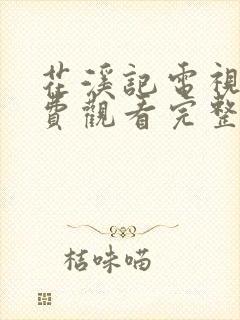 花溪記電視
費觀看完整
桔味喵